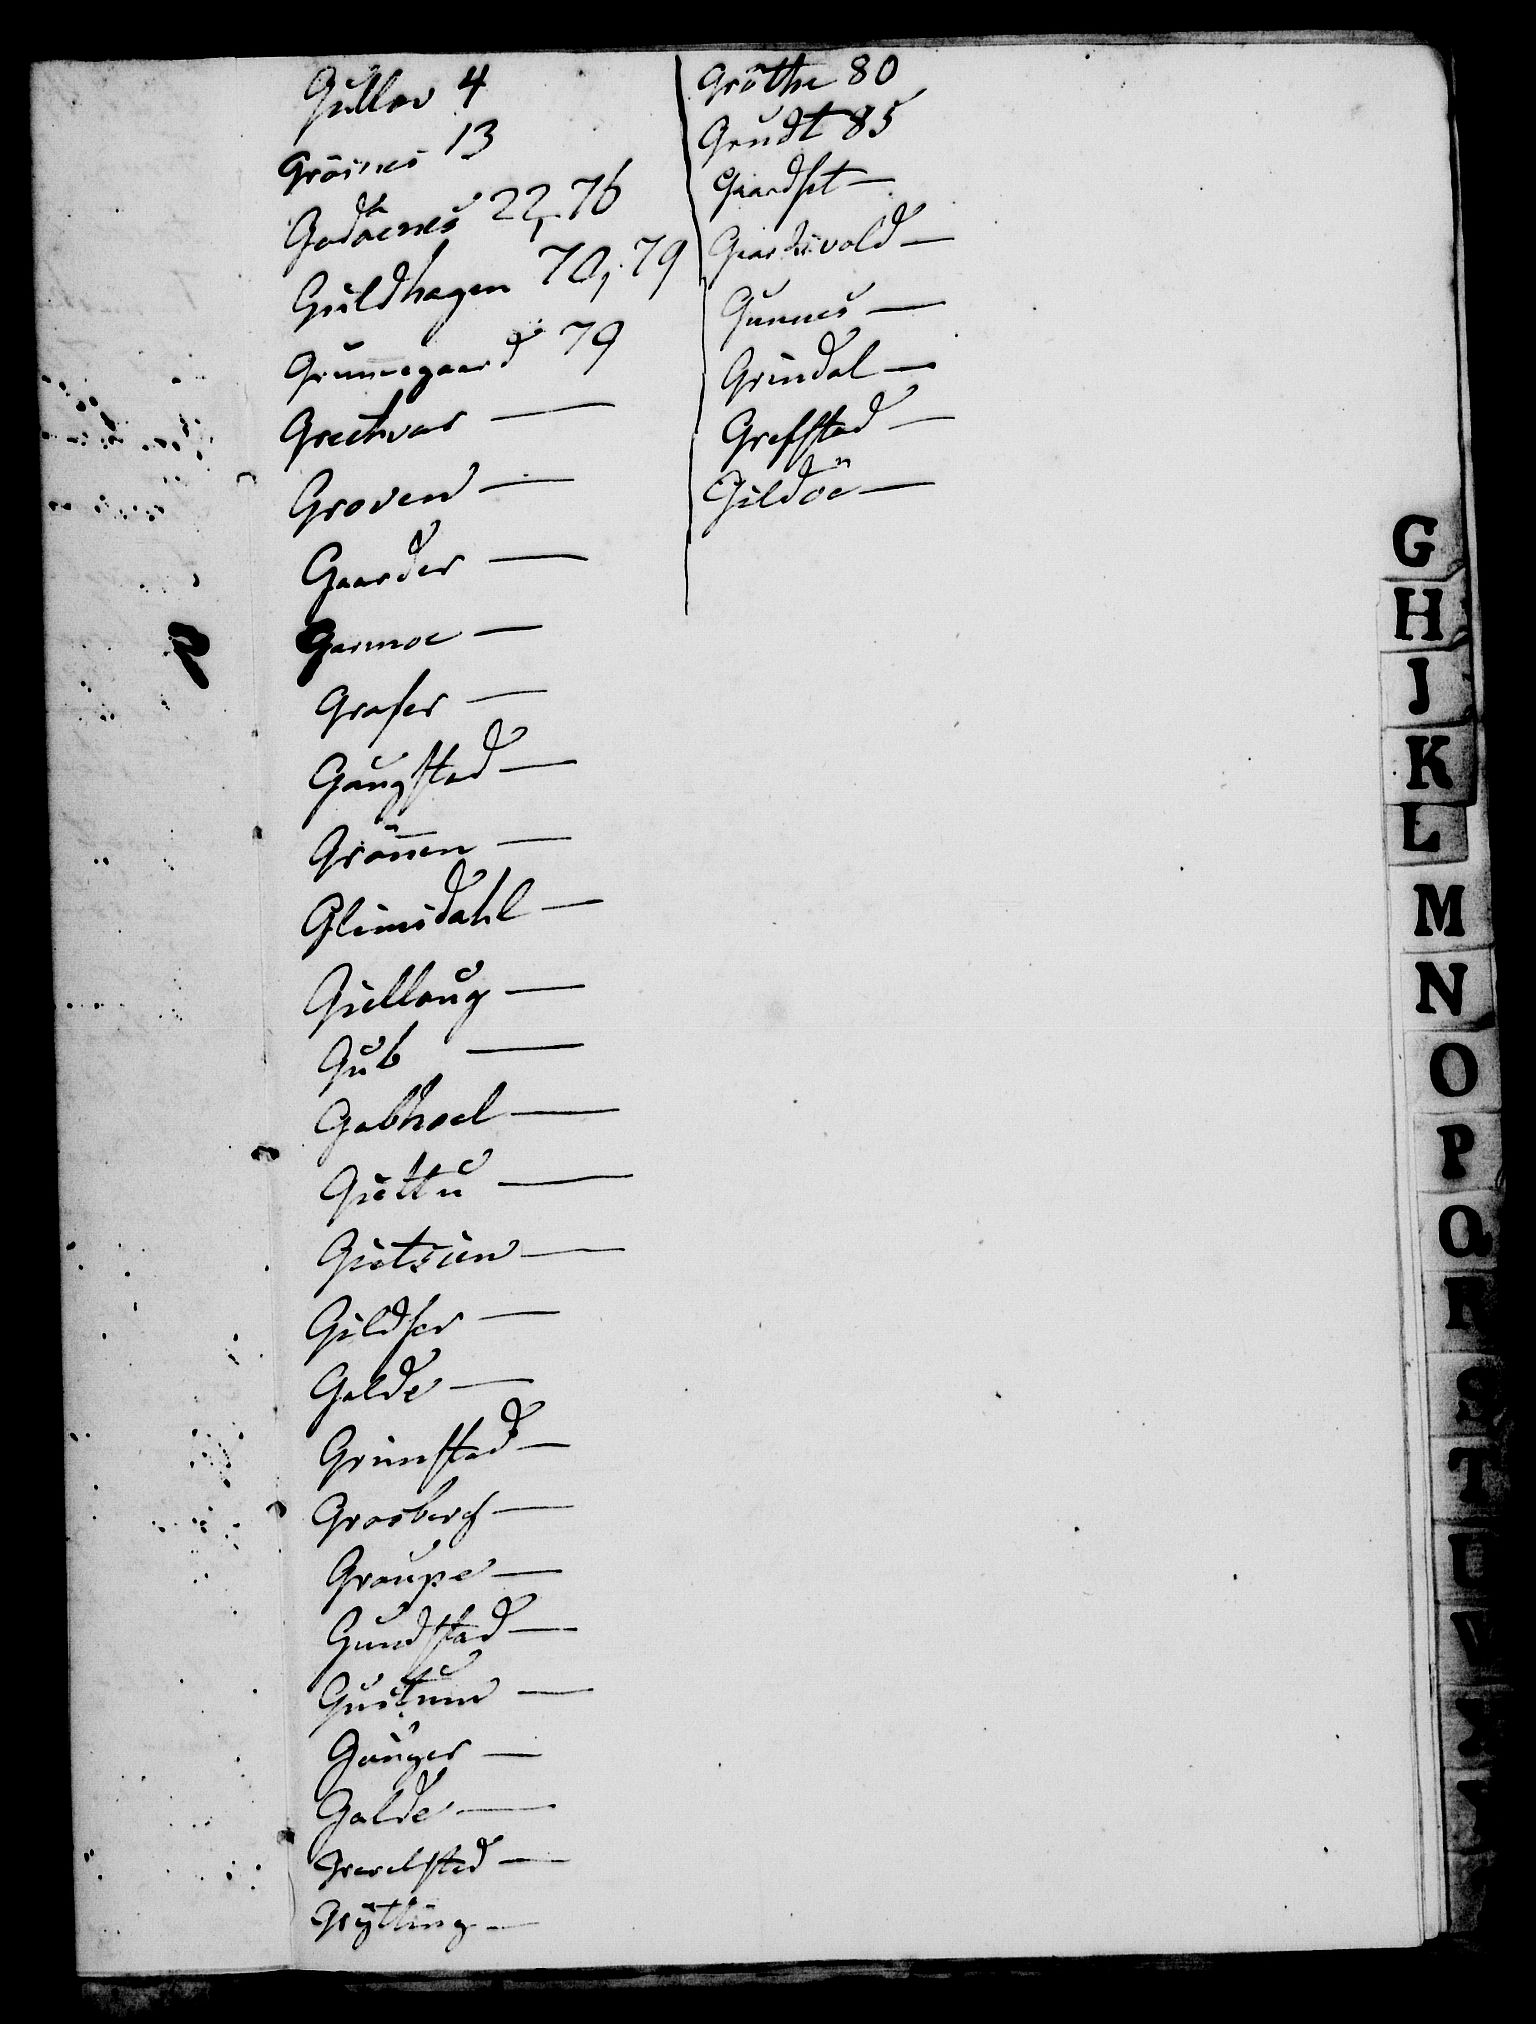 Gullov 4
Grøsnes 13
Godøenes 22, 76
Guldhagen 70, 79
Grunnegaard 79
Greitvar —
Groven —
Gaarder —
Garmoe —
Grafer —
Gaugstad —
Grønen —
Glimsdahl —
Giellaug —
Gub —
Gabhoel —
Giettu —
Gietsien —
Gildser —
Galde —
Grimstad —
Grosberg —
Graupe —
Gundstad —
Gustum —
Gauger —
Galde —
Grevelstad —
Grytting —
Grøthe 80
Grudt 85
Gaardset —
Gaardsvold —
Gunnes —
Grindal —
Grefstad —
Gildøen —
G
H
J
K
L
M
N
O
P
Q
R
S
T
U
V
X